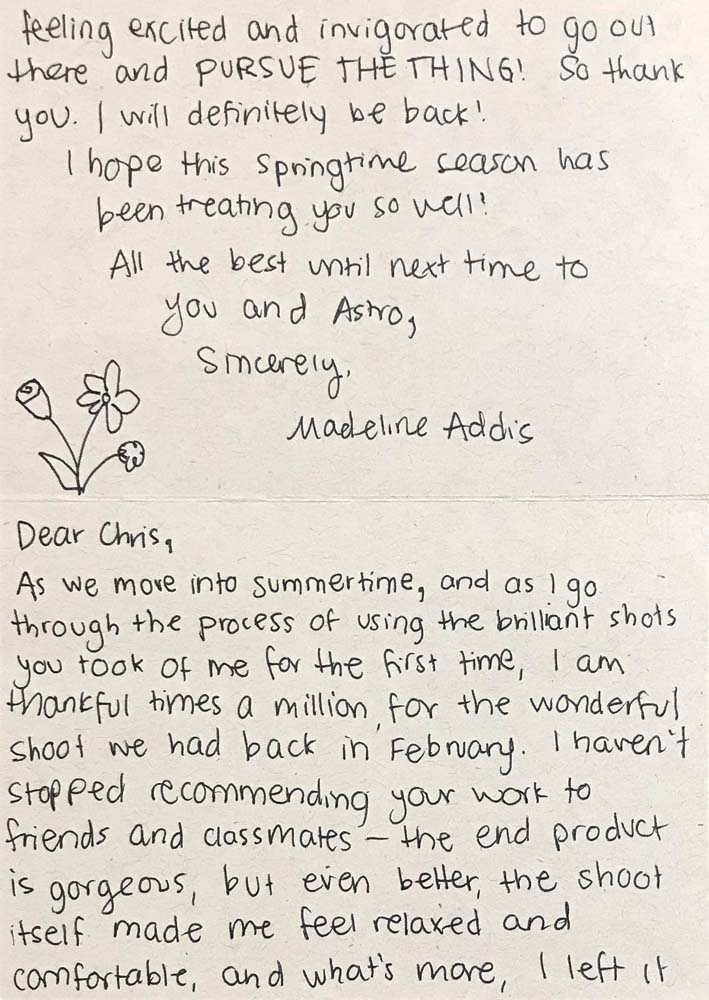 feeling excited and invigorated to go out
there and PURSUE THE THING! So thank
you. I will definitely be back!
I hope this springtime season has
been treating you so well!
All the best until next time to
you and Astro,
Sincerely,
Madeline Addis
Dear Chris,
As we move into summertime, and as I go
through the process of using the brilliant shots
you took of me for the first time, I am
thankful times a million for the wonderful
shoot we had back in February. I haven't
stopped recommending your work to
friends and classmates – the end product
is gorgeous, but even better, the shoot
itself made me feel relaxed and
comfortable, and what's more, I left it